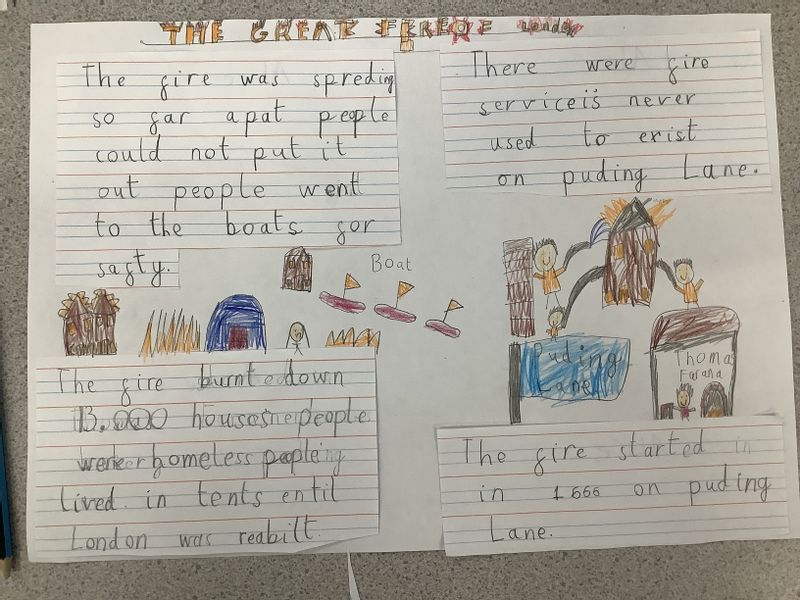 THE GREAT FIRE OF London
The fire was spreding
so far apat people
could not put it
out people went
to the boats for
safty.
There were fire
serviceis never
used to exist
on puding Lane.
Boat
Puding
Lane
Thomas
Farana
The fire burnt down
13.000 houses people
were homeless people
lived in tents entil
London was reabilt.
The fire started
in 1666 on puding
Lane.